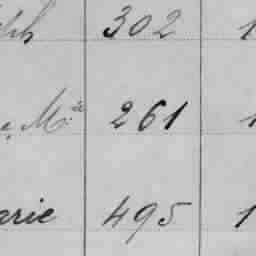 302 1
e M.ie 261 1
arie 495 1